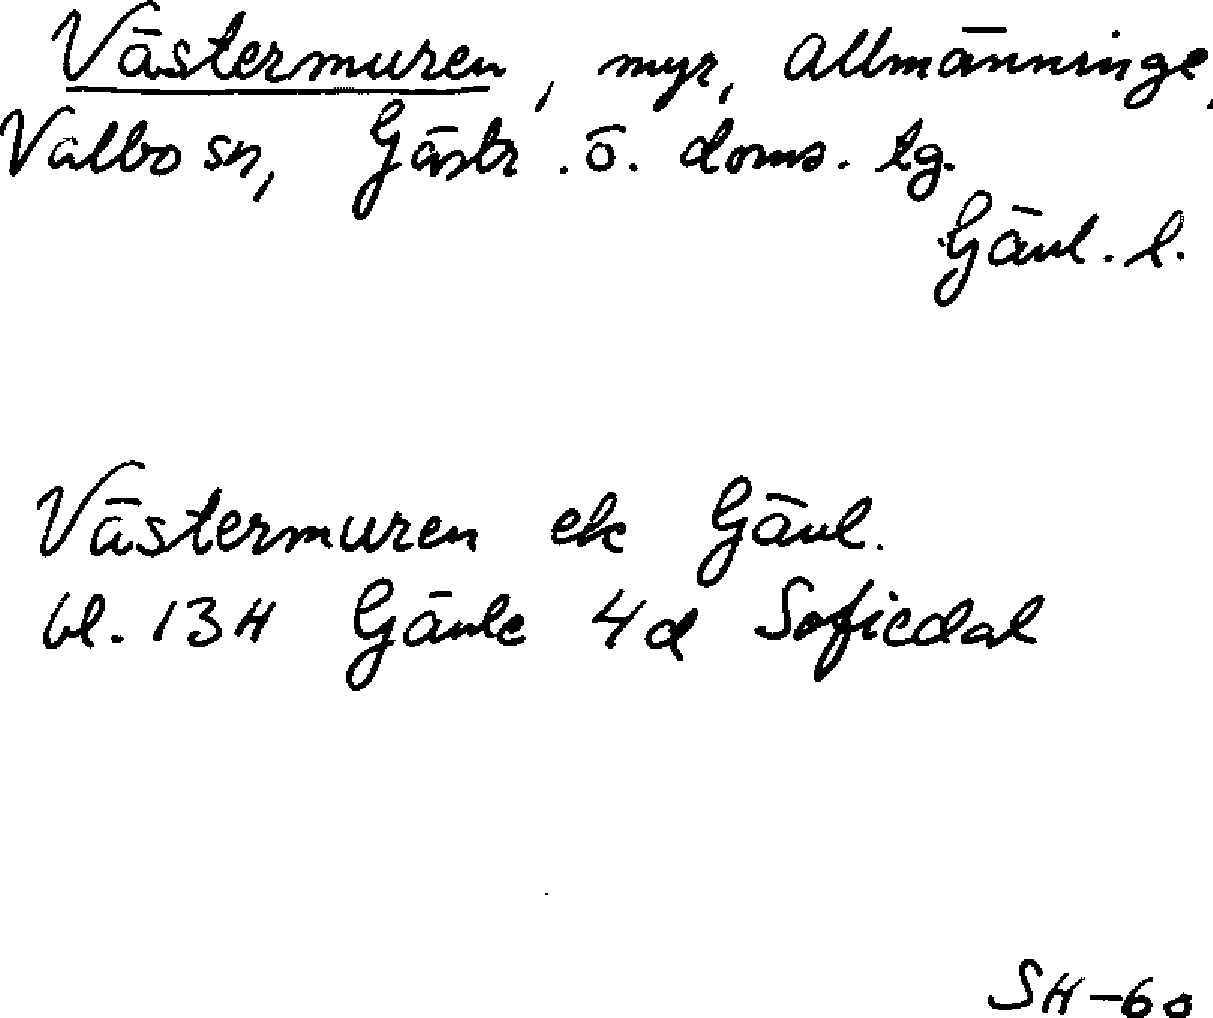 Västermuren, myr, Allmänninge,
Valbo sn, Gästr. ö. doms. tg.
Gävl. l.
Västermuren ek Gävl.
bl. 13H Gävle 4d Sofiedal
SH-60